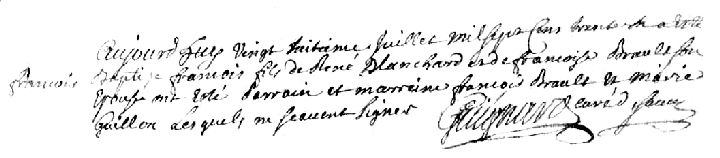 Aujourd huy vingt huitieme juillet mil sept cens trente six a esté
francois
Baptisé francois fils de René Blanchard et de francoise Brault son
Epouse ont esté Parrain et marraine francois Brault et Marie
Guillon Lesquels ne scavent signer
curé d